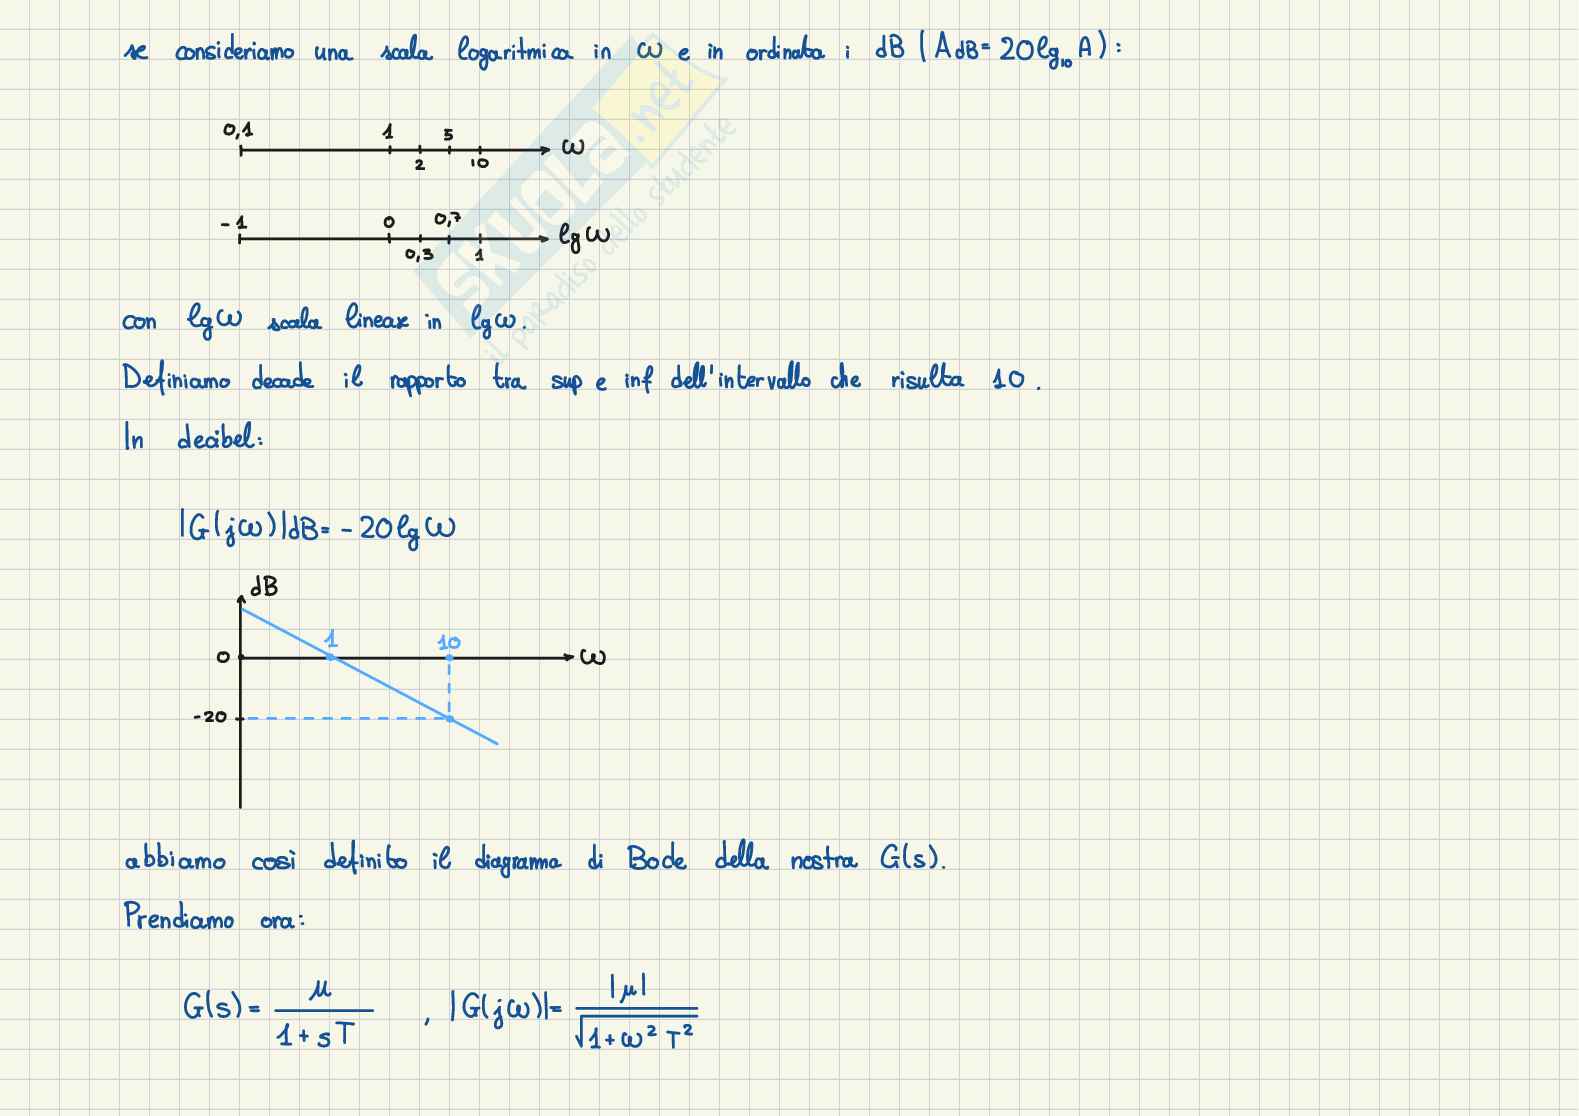 se consideriamo una scala logaritmica in ω e in ordinata i dB (A dB = 20 lg₁₀ A):
0,1 1 5 ω
2 10
-1 0 0,7 lg ω
0,3 1
con lg ω scala lineare in lg ω.
Definiamo decade il rapporto tra sup e inf dell'intervallo che risulta 10.
In decibel:
|G(jω)|dB = - 20 lg ω
dB
1 10
0 ω
-20
abbiamo così definito il diagramma di Bode della nostra G(s).
Prendiamo ora:
G(s) = μ / (1 + sT) , |G(jω)| = |μ| / √(1 + ω² T²)
SKUOLA.net
il paradiso dello studente